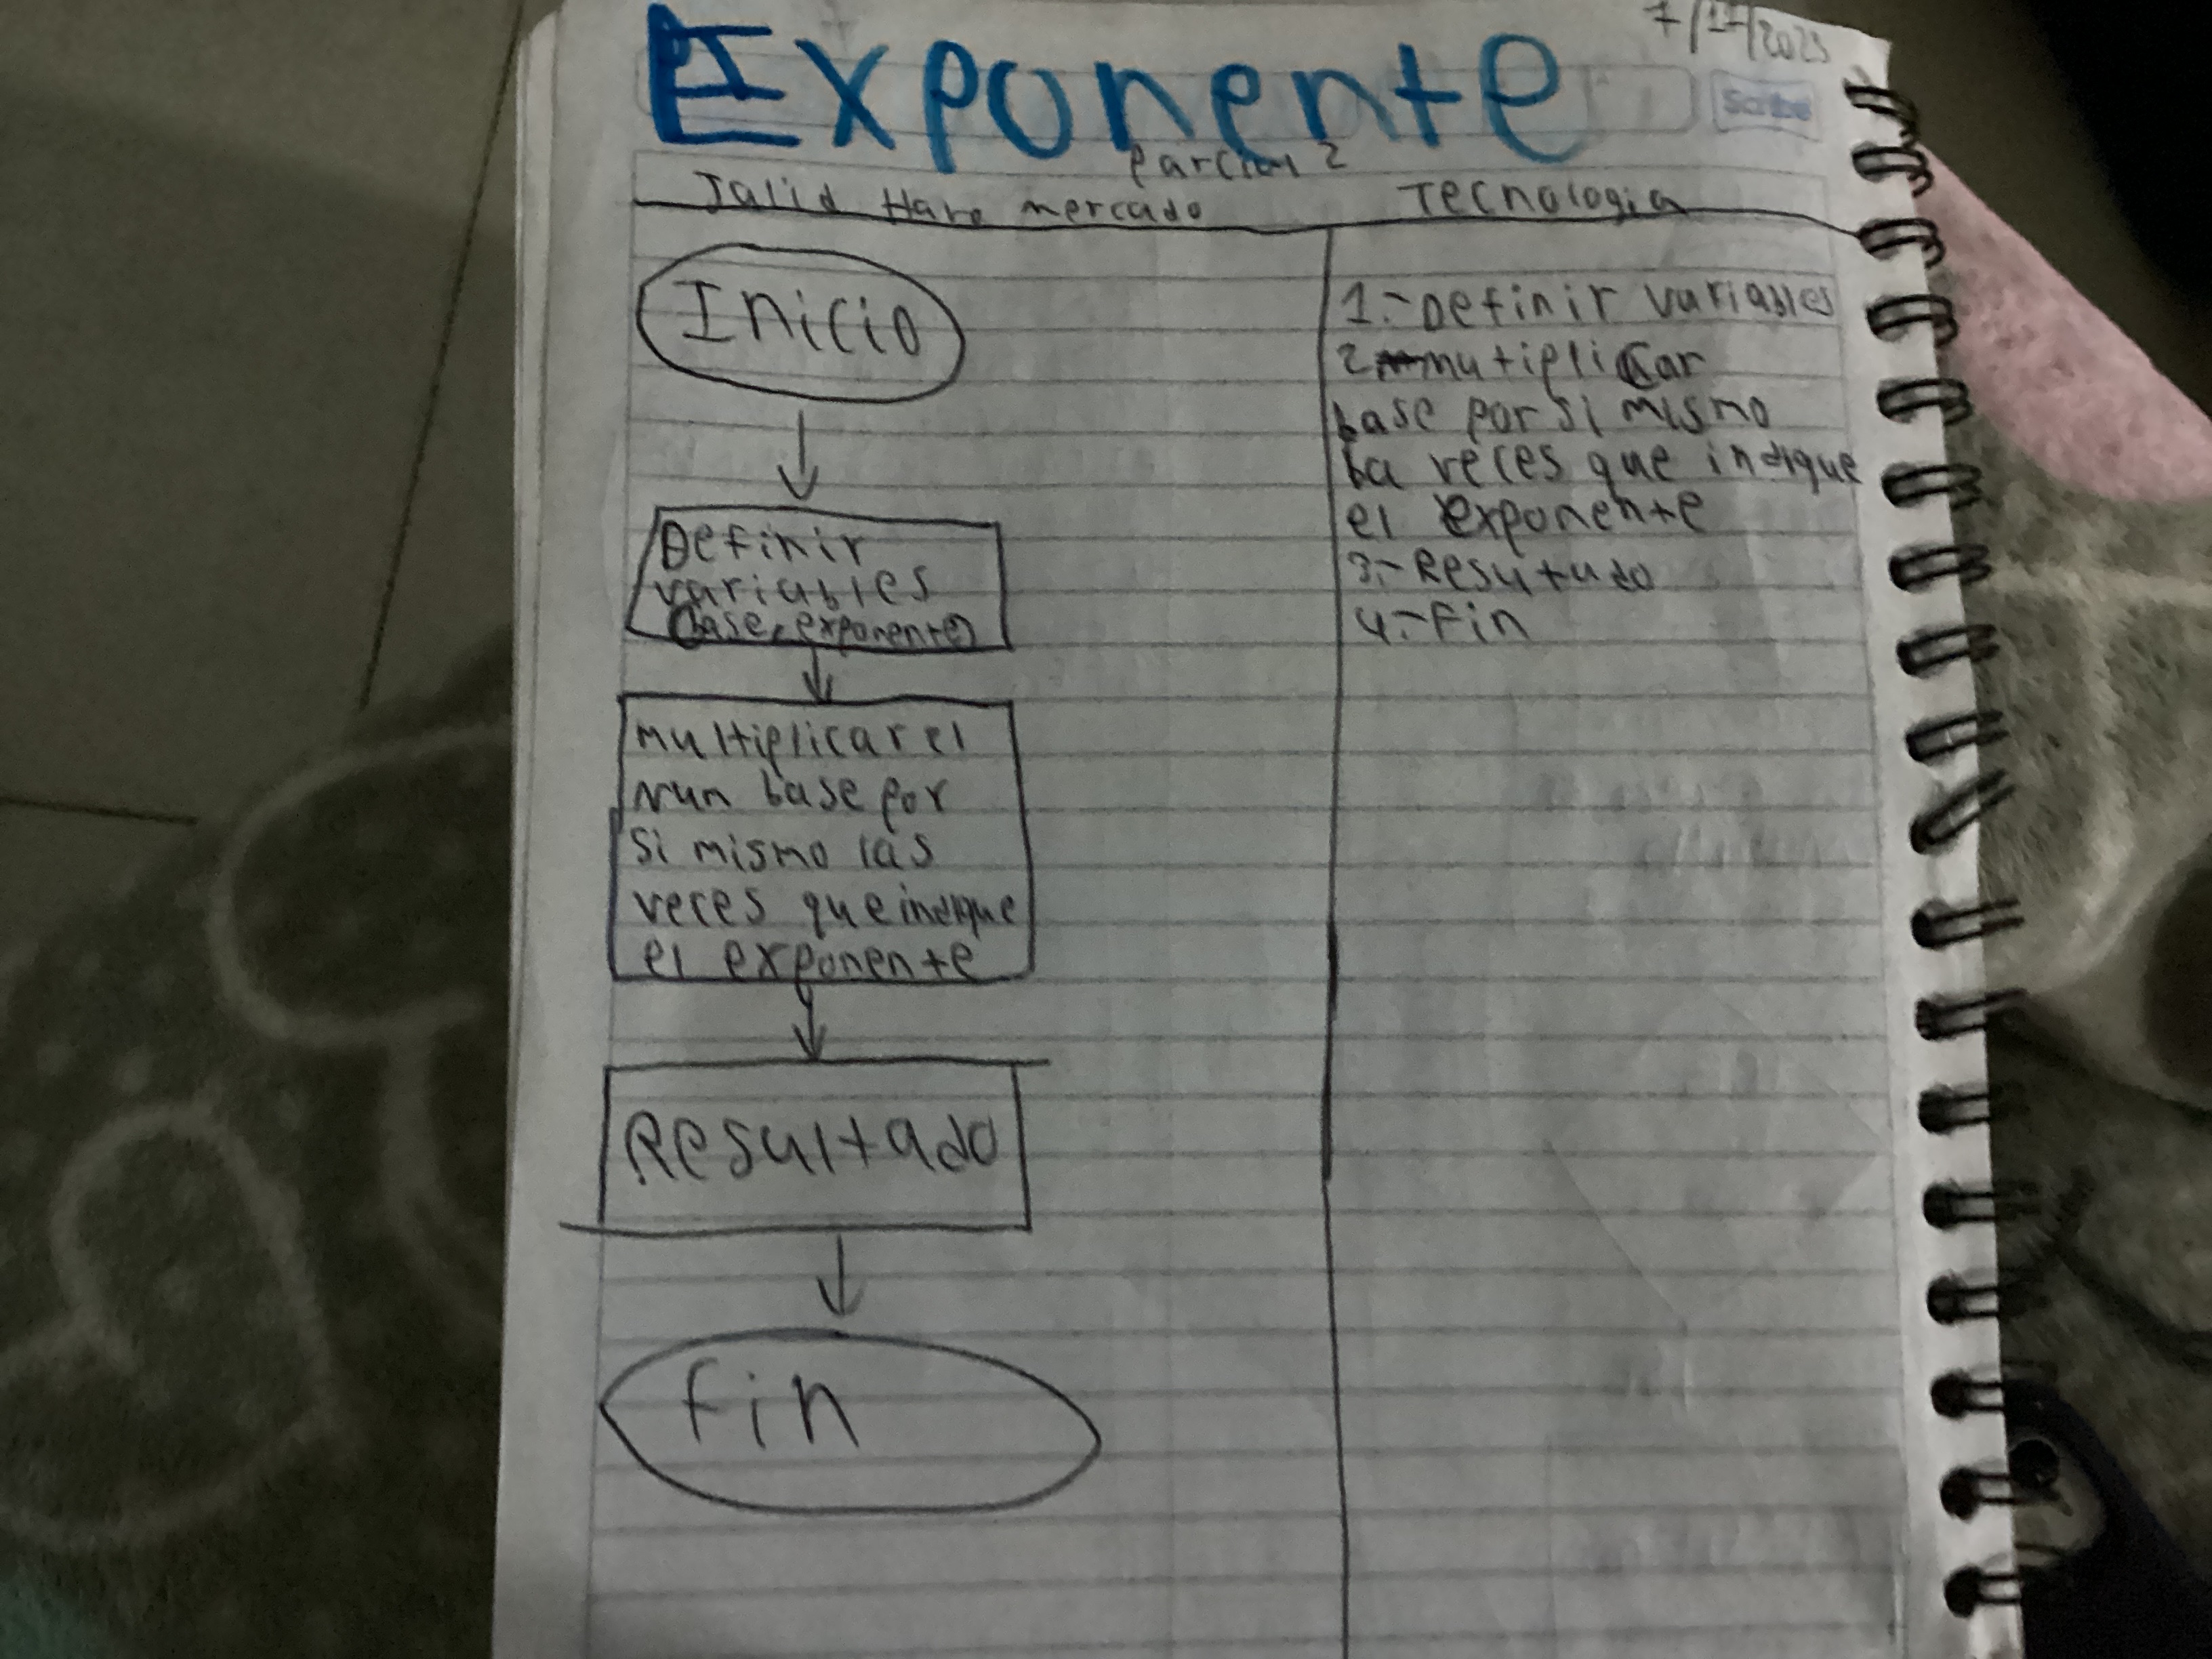 Exponente
Scribe
Parcial 2
Jalid Haro mercado
Tecnologia
Inicio
Definir
variables
(base, exponente)
multiplicar el
nun base por
si mismo las
veces que indique
el exponente
Resultado
fin
1.- Definir variables
2 mutiplicar
base por si mismo
ba veces que indique
el exponente
3.- Resutado
4.- Fin